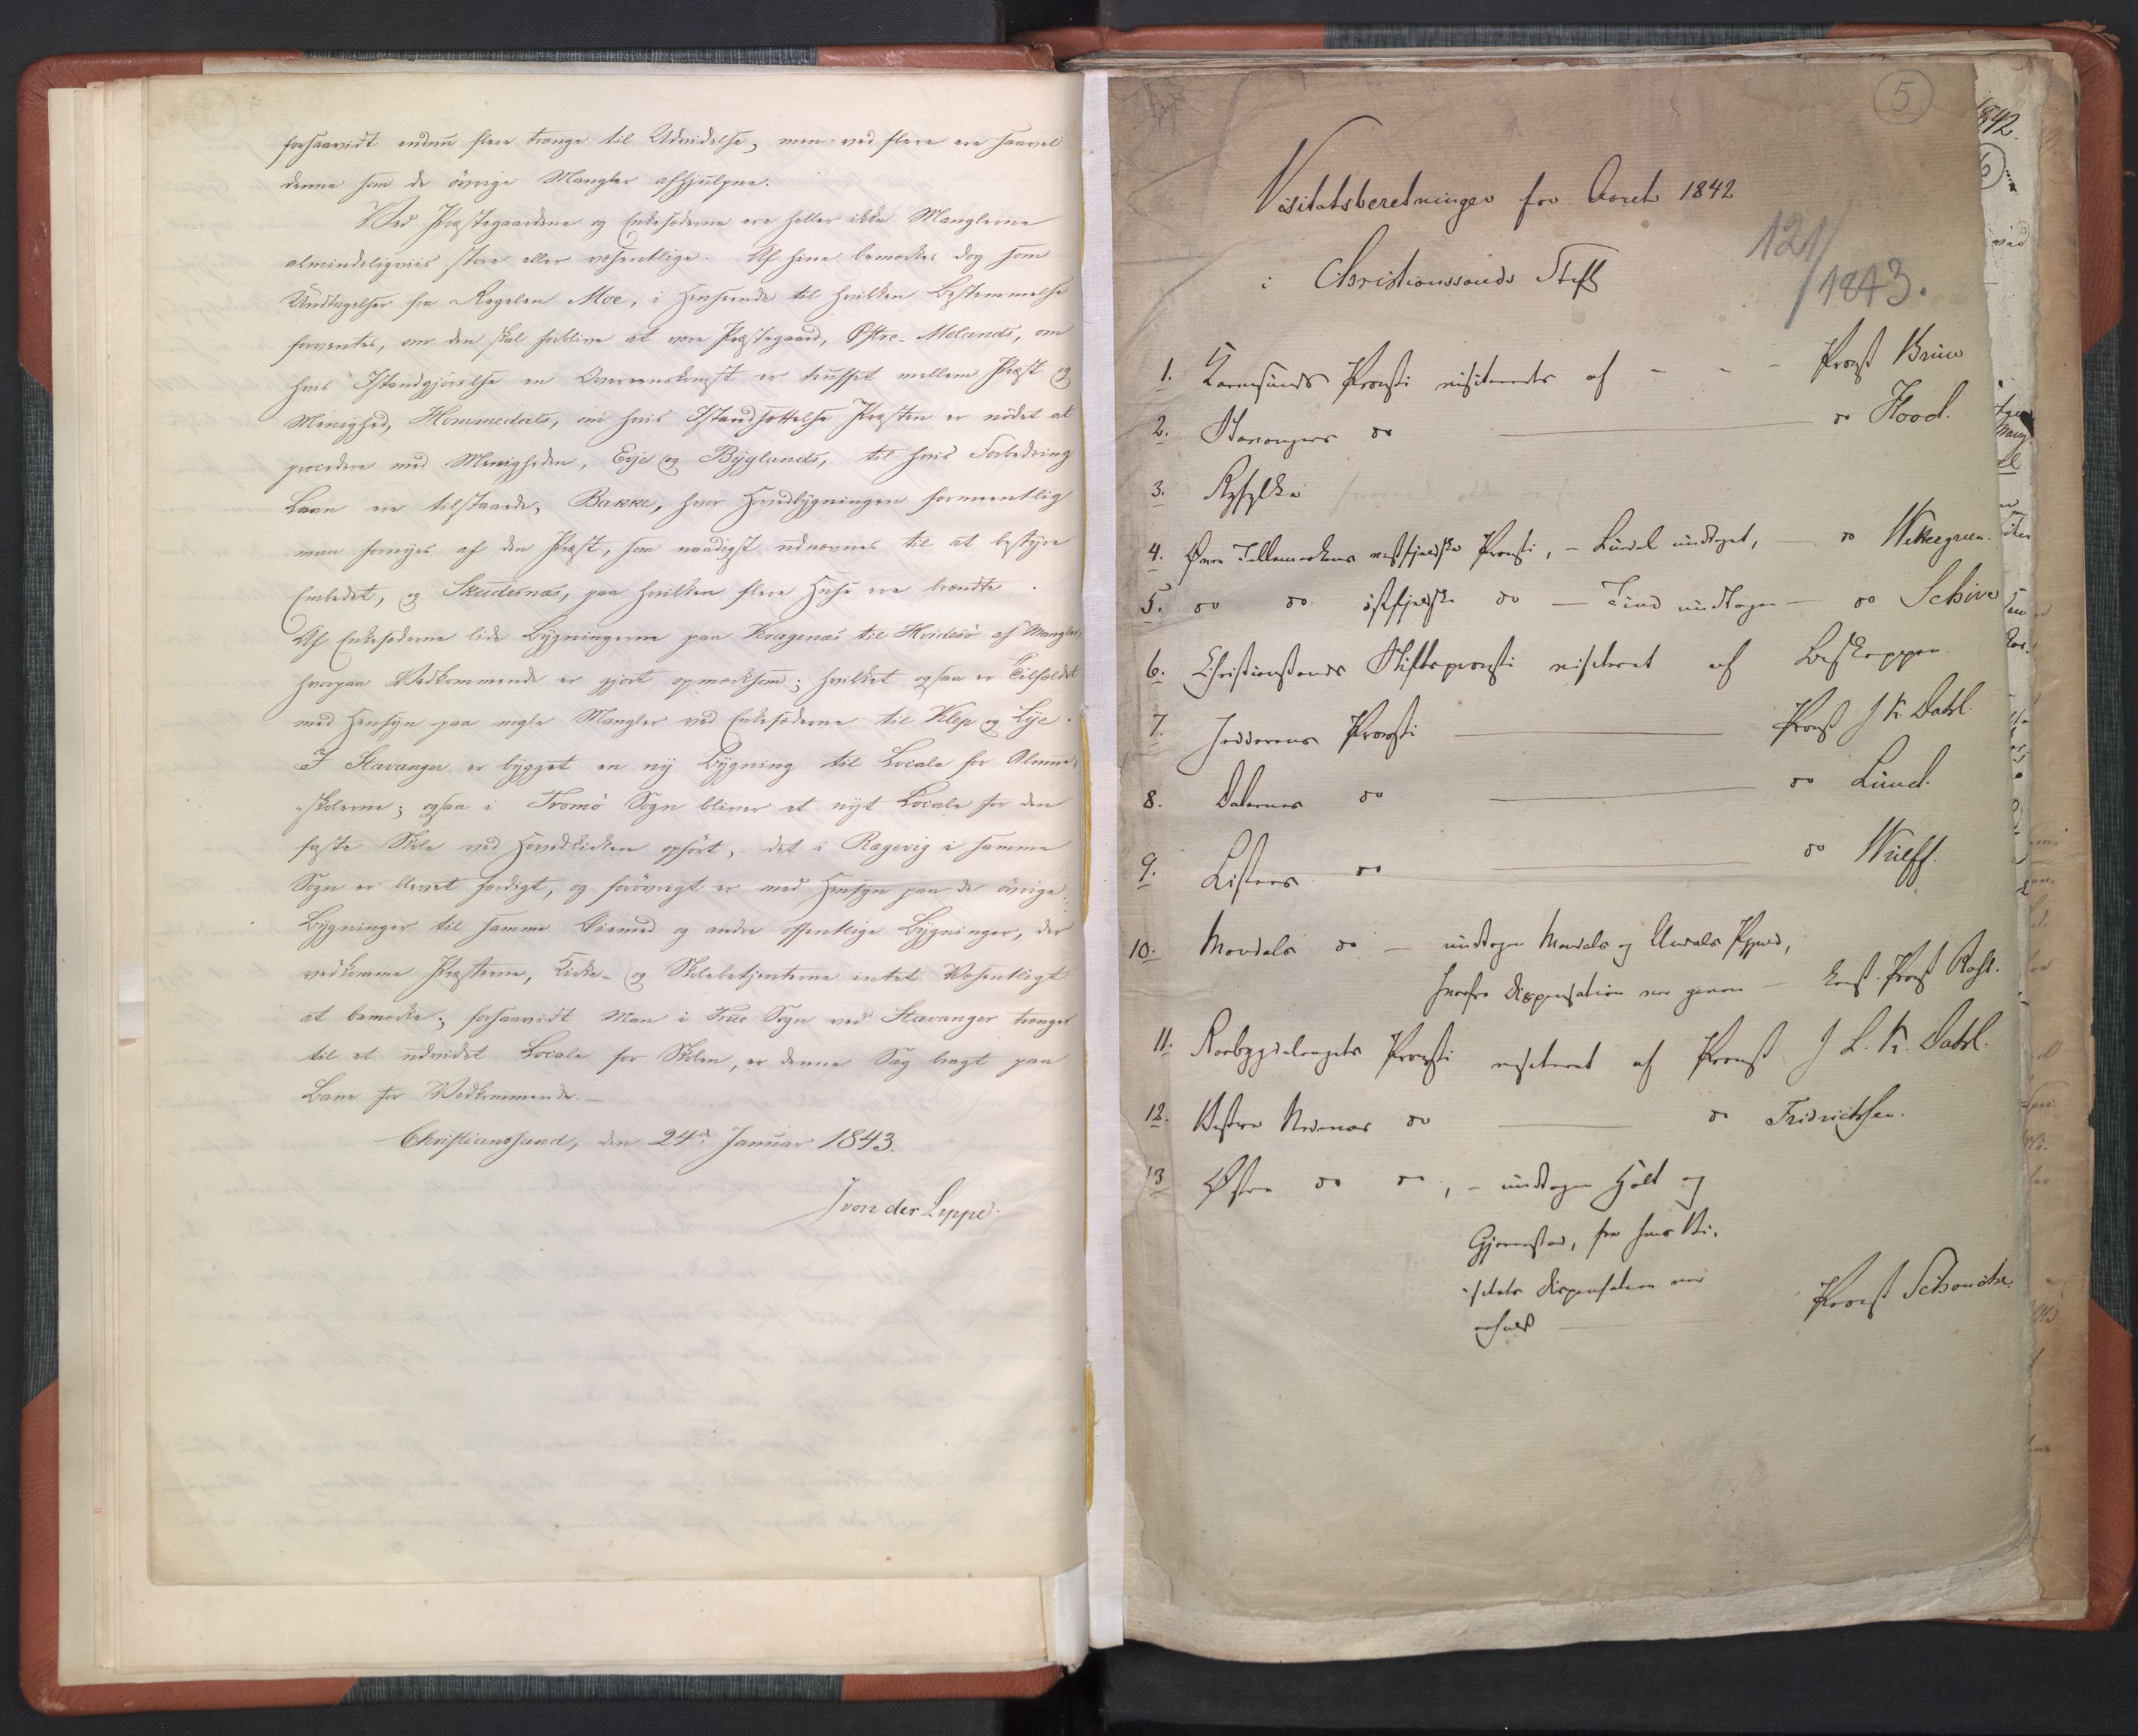 forsaavidt endnu flere trænge til Udvidelse, men ved flere ere saavel
denne som de øvrige Mangler afhjulpne.
Ved Præstegaardene og Enkesæderne ere heller ikke Manglerne
almindeligviis store eller væsentlige. Af hine bemærkes dog som
Undtagelser fra Regelen Moe, i Henseende til hvilken Bestemmelse
forventes, om den skal forblive at være Præstegaard, Østre-Molands, om
hvis Istandgjørelse en Overeenskomst er truffet mellem Præst og
Menighed, Hommedals, om hvis Istandsættelse Præsten er nødet at
procedere med Menigheden, Evje og Byglands, til hvis Forbedring
Laan ere tilstaaede, Bakke, hvor Hovedbygningen formeentlig
maa fornyes af den Præst, som naadigst udnævnes til at bestyre
Embedet, og Skudesnæs, paa hvilken flere Huse ere brændte.
Af Enkesæderne lide Bygningerne paa Kragenæs til Hvidesø af Mangler,
hvorpaa Vedkommende er gjort opmærksom; hvilket ogsaa er Tilfældet
med Hensyn paa nogle Mangler ved Enkesæderne til Klep og Lye.
I Stavanger er bygget en ny Bygning til Locale for Almue-
skolerne; ogsaa i Tromø Sogn bliver et nyt Locale for den
faste Skole ved Hovedkirken opført, det i Rægevig i samme
Sogn er blevet færdigt, og forøvrigt er med Hensyn paa de øvrige
Bygninger til samme Øiemed og andre offentlige Bygninger, der
vedkomme Præsterne, Kirke- og Skolebetjenterne intet Væsentligt
at bemærke; forsaavidt Man i Frue Sogn ved Stavanger trænger
til et udvidet Locale for Skolen, er denne Sag bragt paa
Bane for Vedkommende.—
Christianssand, den 24de Januar 1843.
J von der Lippe.
5
Visitatsberetninger for Aaret 1842
i Christianssands Stift
121/1843.
1. Karmsunds Provsti visiterets af - - - Provst Bruun
2. Stavangers do — do Flood.
3. Ryfylke
4. Øvre Tellemarkens vestfjeldske Provsti, - Laurdal undtaget, — do Wettergreen.
5. do do østfjeldske do — Tind undtagen — do Schive
6. Christianssands Stiftsprovsti visiteret af Biskoppen.
7. Jedderens Provsti — Provst J K. Dahl.
8. Dalernes do — do Lund.
9. Listers do — do Wulff.
10. Mandals do — undtagen Mandals og Undals Pgjeld,
hvorfra Dispensation var given — Const. Provst
11. Raabygdelagets Provsti visiteret af Provst J L. K. Dahl.
12. Vestre Nedenæs do — do Fridrichsen.
13 Østre do do, - undtagen Holt og
Gjerrestad, fra hvis Vi-
sitats Dispensation var
erholdt — Provst Schanche.